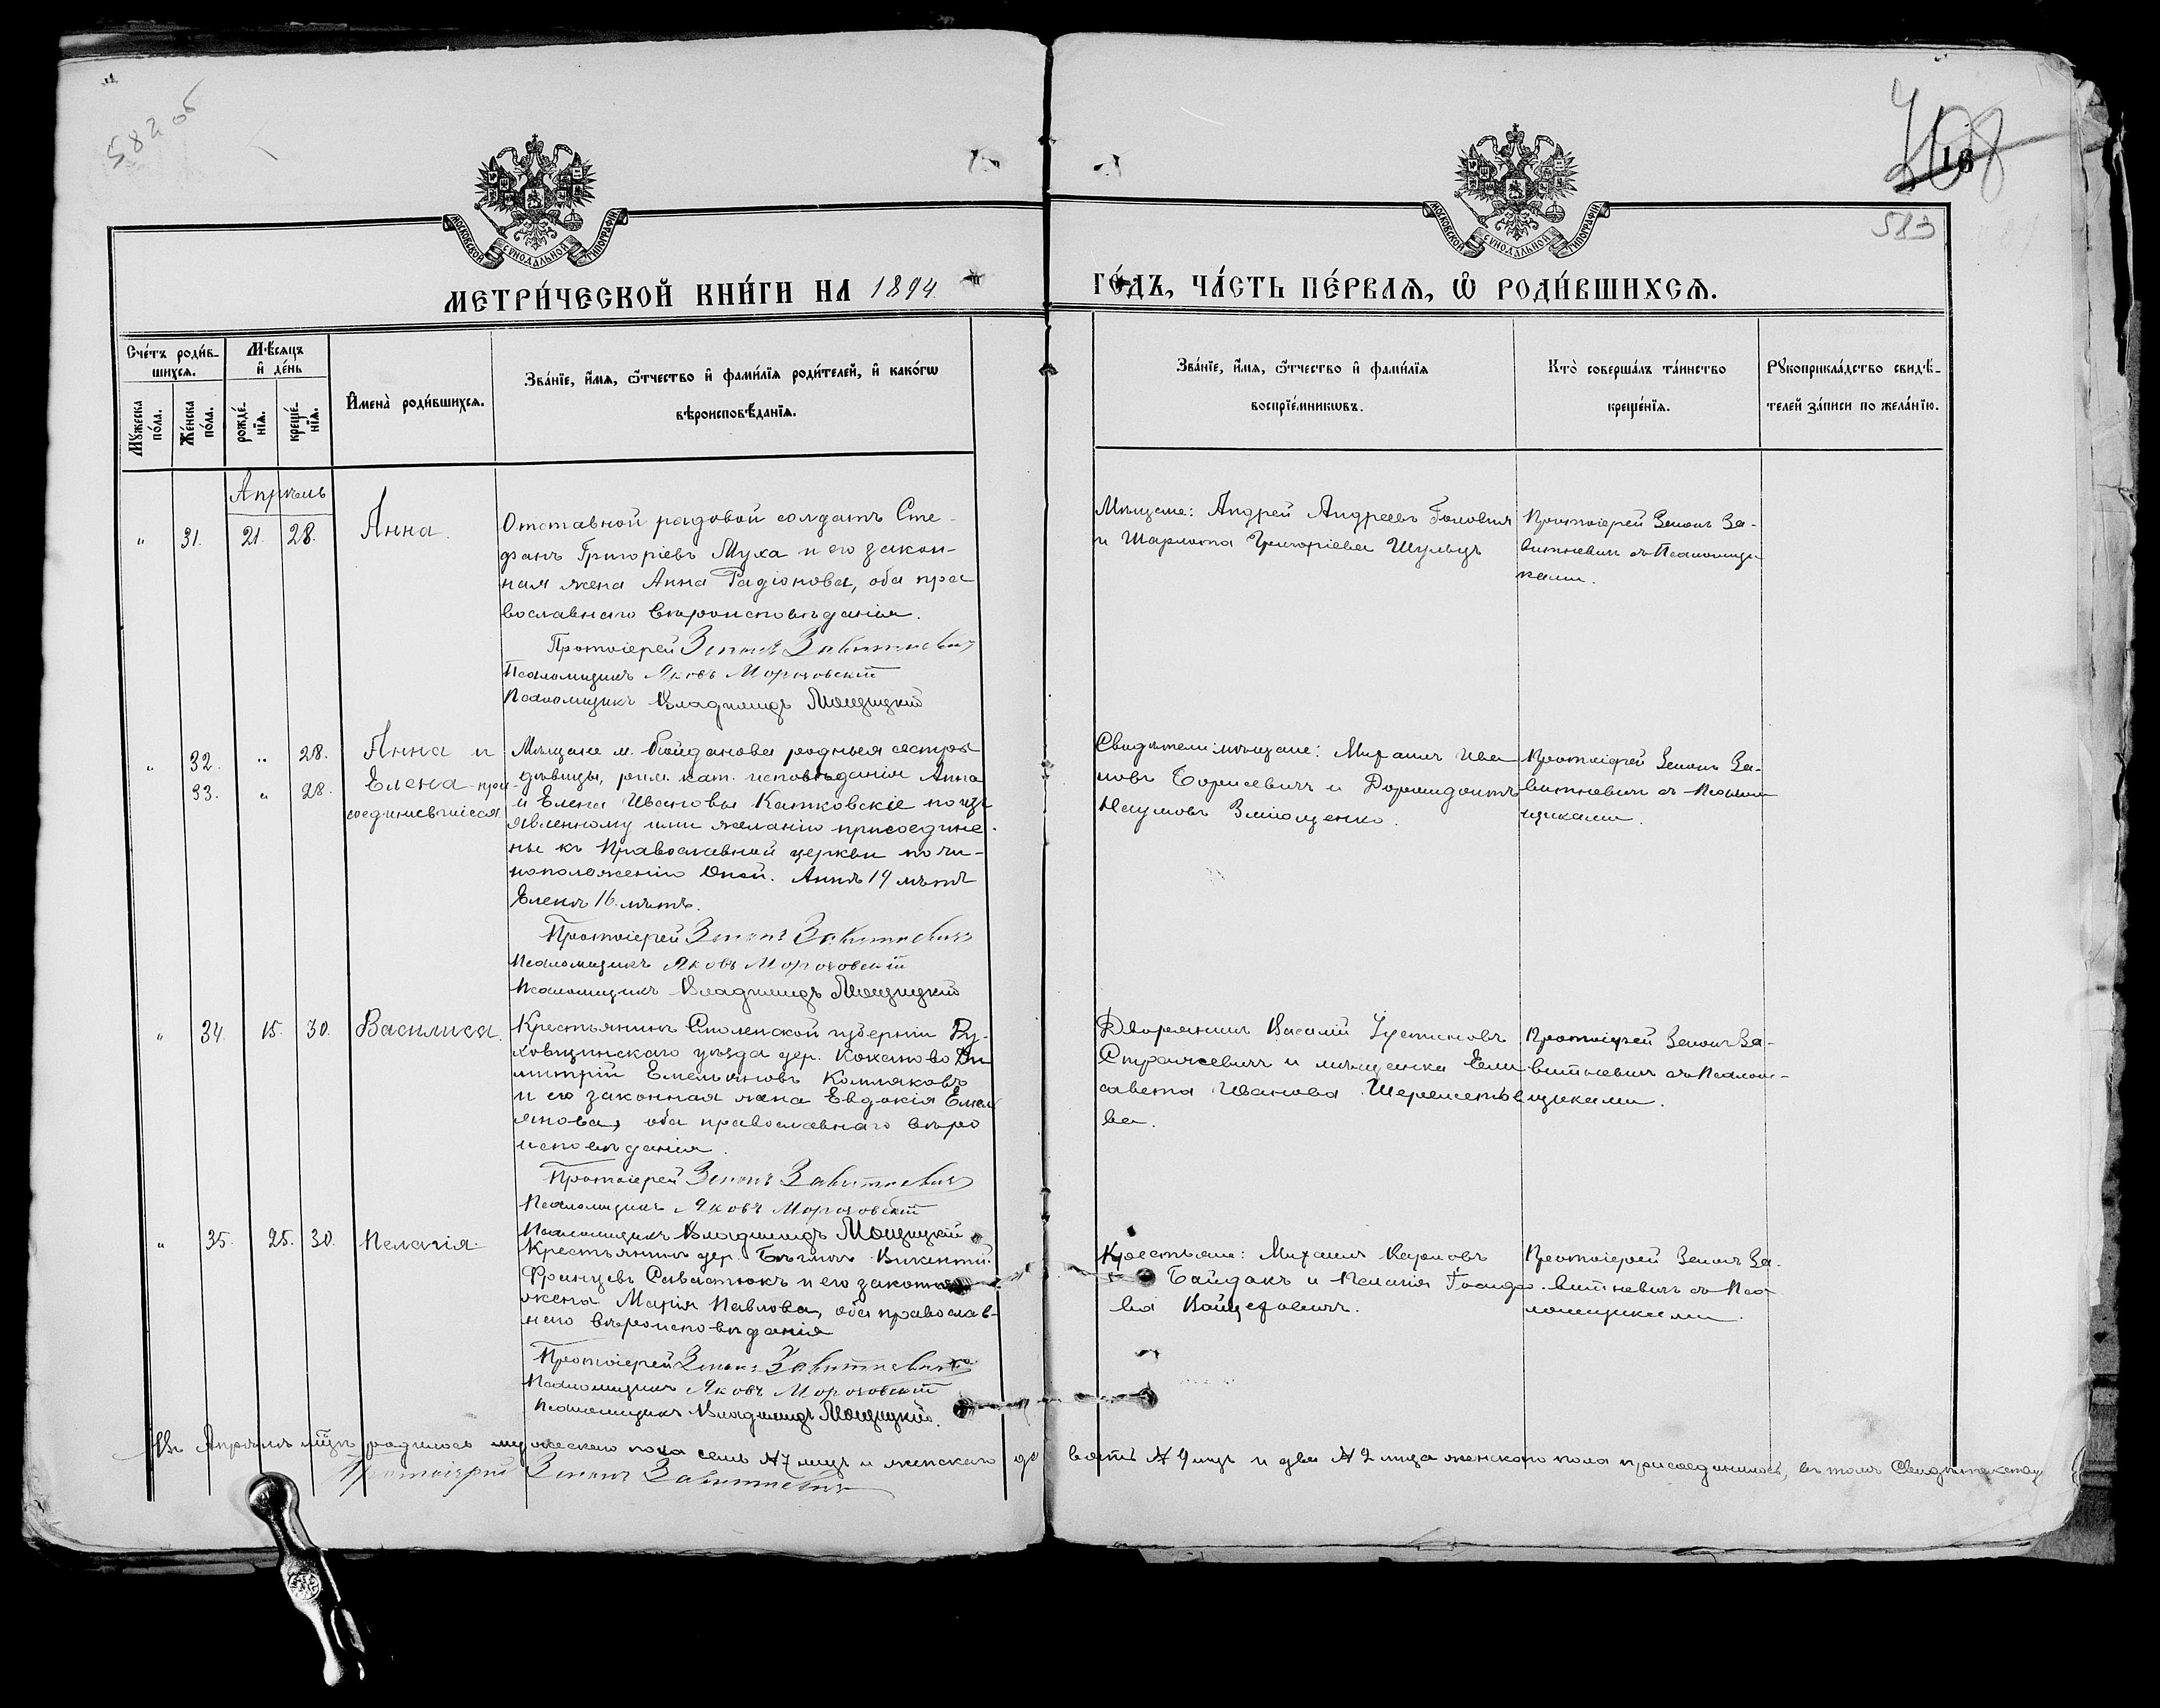 582 об
16
513
МОСКОВСКОЙ СѴНОДАЛЬНОЙ ТИПОГРАФІИ
МОСКОВСКОЙ СѴНОДАЛЬНОЙ ТИПОГРАФІИ
МЕТРИ́ЧЕСКОЙ КНИ́ГИ НА 1894
ГО́ДЪ, ЧА́СТЬ ПЕ́РВАѦ, Ѡ РОДИ́ВШИХСѦ.
Сче́тъ роди́в-
шихсѧ.
Мѣ́сѧцъ
и де́нь
Имена̀ роди́вшихсѧ.
Зва́нїе, и́мѧ, ѻ҆́тчество и фами́лїѧ роди́телей, и како́гѡ
вѣроисповѣ́данїѧ.
Мꙋ́жеска
по́ла.
Же́нска
по́ла.
рожде́-
нїѧ.
креще́-
нїѧ.
Зва́нїе, и́мѧ, ѻ҆́тчество и фами́лїѧ
воспрїе́мникѡвъ.
Кто̀ соверша́лъ та́инство
креще́нїѧ.
Рꙋкоприкла́дство свидѣ́-
телей за́писи по жела́нїю.
Апрѣль
" 31. 21. 28. Анна.
Отставной рядовой солдатъ Сте-
фанъ Григоріевъ Муха и его закон-
ная жена Анна Радіонова, оба пра
вославнаго вѣроисповѣданія.
Протоіерей Зенонъ Завитневичъ
Псаломщикъ Яковъ Мороховскій
Псаломщикъ Владимиръ Мощицкій
Мѣщане: Андрей Андреевъ
и Шарлота Григоріева Шульцъ
Протоіерей Зенонъ За-
витневичъ съ Псаломщи-
ками.
" 32. " 28. Анна и
33. " 28. Елена при-
соединившіеся.
Мѣщане м. Койданова родныя сестры
дѣвицы, рим. кат. исповѣданія Анна
и Елена Ивановы Катковскіе по изъ
явленному ими желанію присоедине-
ны къ Православной церкви по чи-
ноположенію Оной. Аннѣ 19 лѣтъ
Еленѣ 16 лѣтъ.
Протоіерей Зенонъ Завитневичъ
Псаломщикъ Яковъ Мороховскій
Псаломщикъ Владимиръ Мощицкій
Свидѣтели мѣщане: Михаилъ Ива
новъ Борисевичъ и Дормидонтъ
Наумовъ
Протоіерей Зенонъ За-
витневичъ съ Псалом
щиками.
" 34. 15. 30. Василиса.
Крестьянинъ Смоленской губерніи Ду-
ховщинскаго уѣзда дер. Коханово Ди
митрій Емельяновъ Комляковъ
и его законная жена Евдокія Емел
янова, оба православнаго вѣро
исповѣданія.
Протоіерей Зенонъ Завитневичъ
Псаломщикъ Яковъ Мороховскій
Псаломщикъ Владимиръ Мощицкій
Дворянинъ Василій Устиновъ
и мѣщанка Ели
савета Иванова Шереметье
ва.
Протоіерей Зенонъ За-
витневичъ съ Псалом-
щиками.
" 35. 25. 30. Пелагія.
Крестьянинъ дер. Викентій
Францевъ Савастюкъ и его законная
жена Марія Павлова, оба православ-
наго вѣроисповѣданія
Протоіерей Зенонъ Завитневичъ
Псаломщикъ Яковъ Мороховскій
Псаломщикъ Владимиръ Мощицкій.
Крестьяне: Михаилъ Карповъ
Байдакъ и Пелагія
ва Войцеховичъ.
Протоіерей Зенонъ За-
витневичъ съ Пса
ломщиками.
Въ Апрѣлѣ мцѣ родилось мужескаго пола семь № 7 лицъ и женскаго де вять № 9 лицъ и двѣ № 2 лица женскаго пола присоединились, въ томъ
Протоіерей Зенонъ Завитневичъ